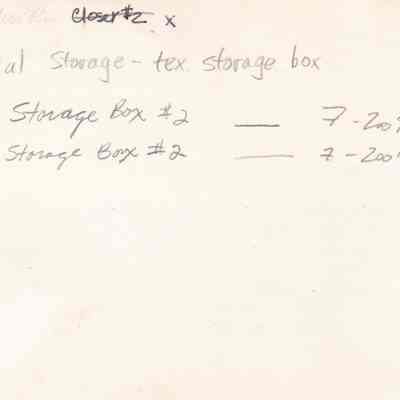 Closet #2 x
al Storage - tex. storage box
Storage Box #2 — 7-200
Storage Box #2 — 7-200